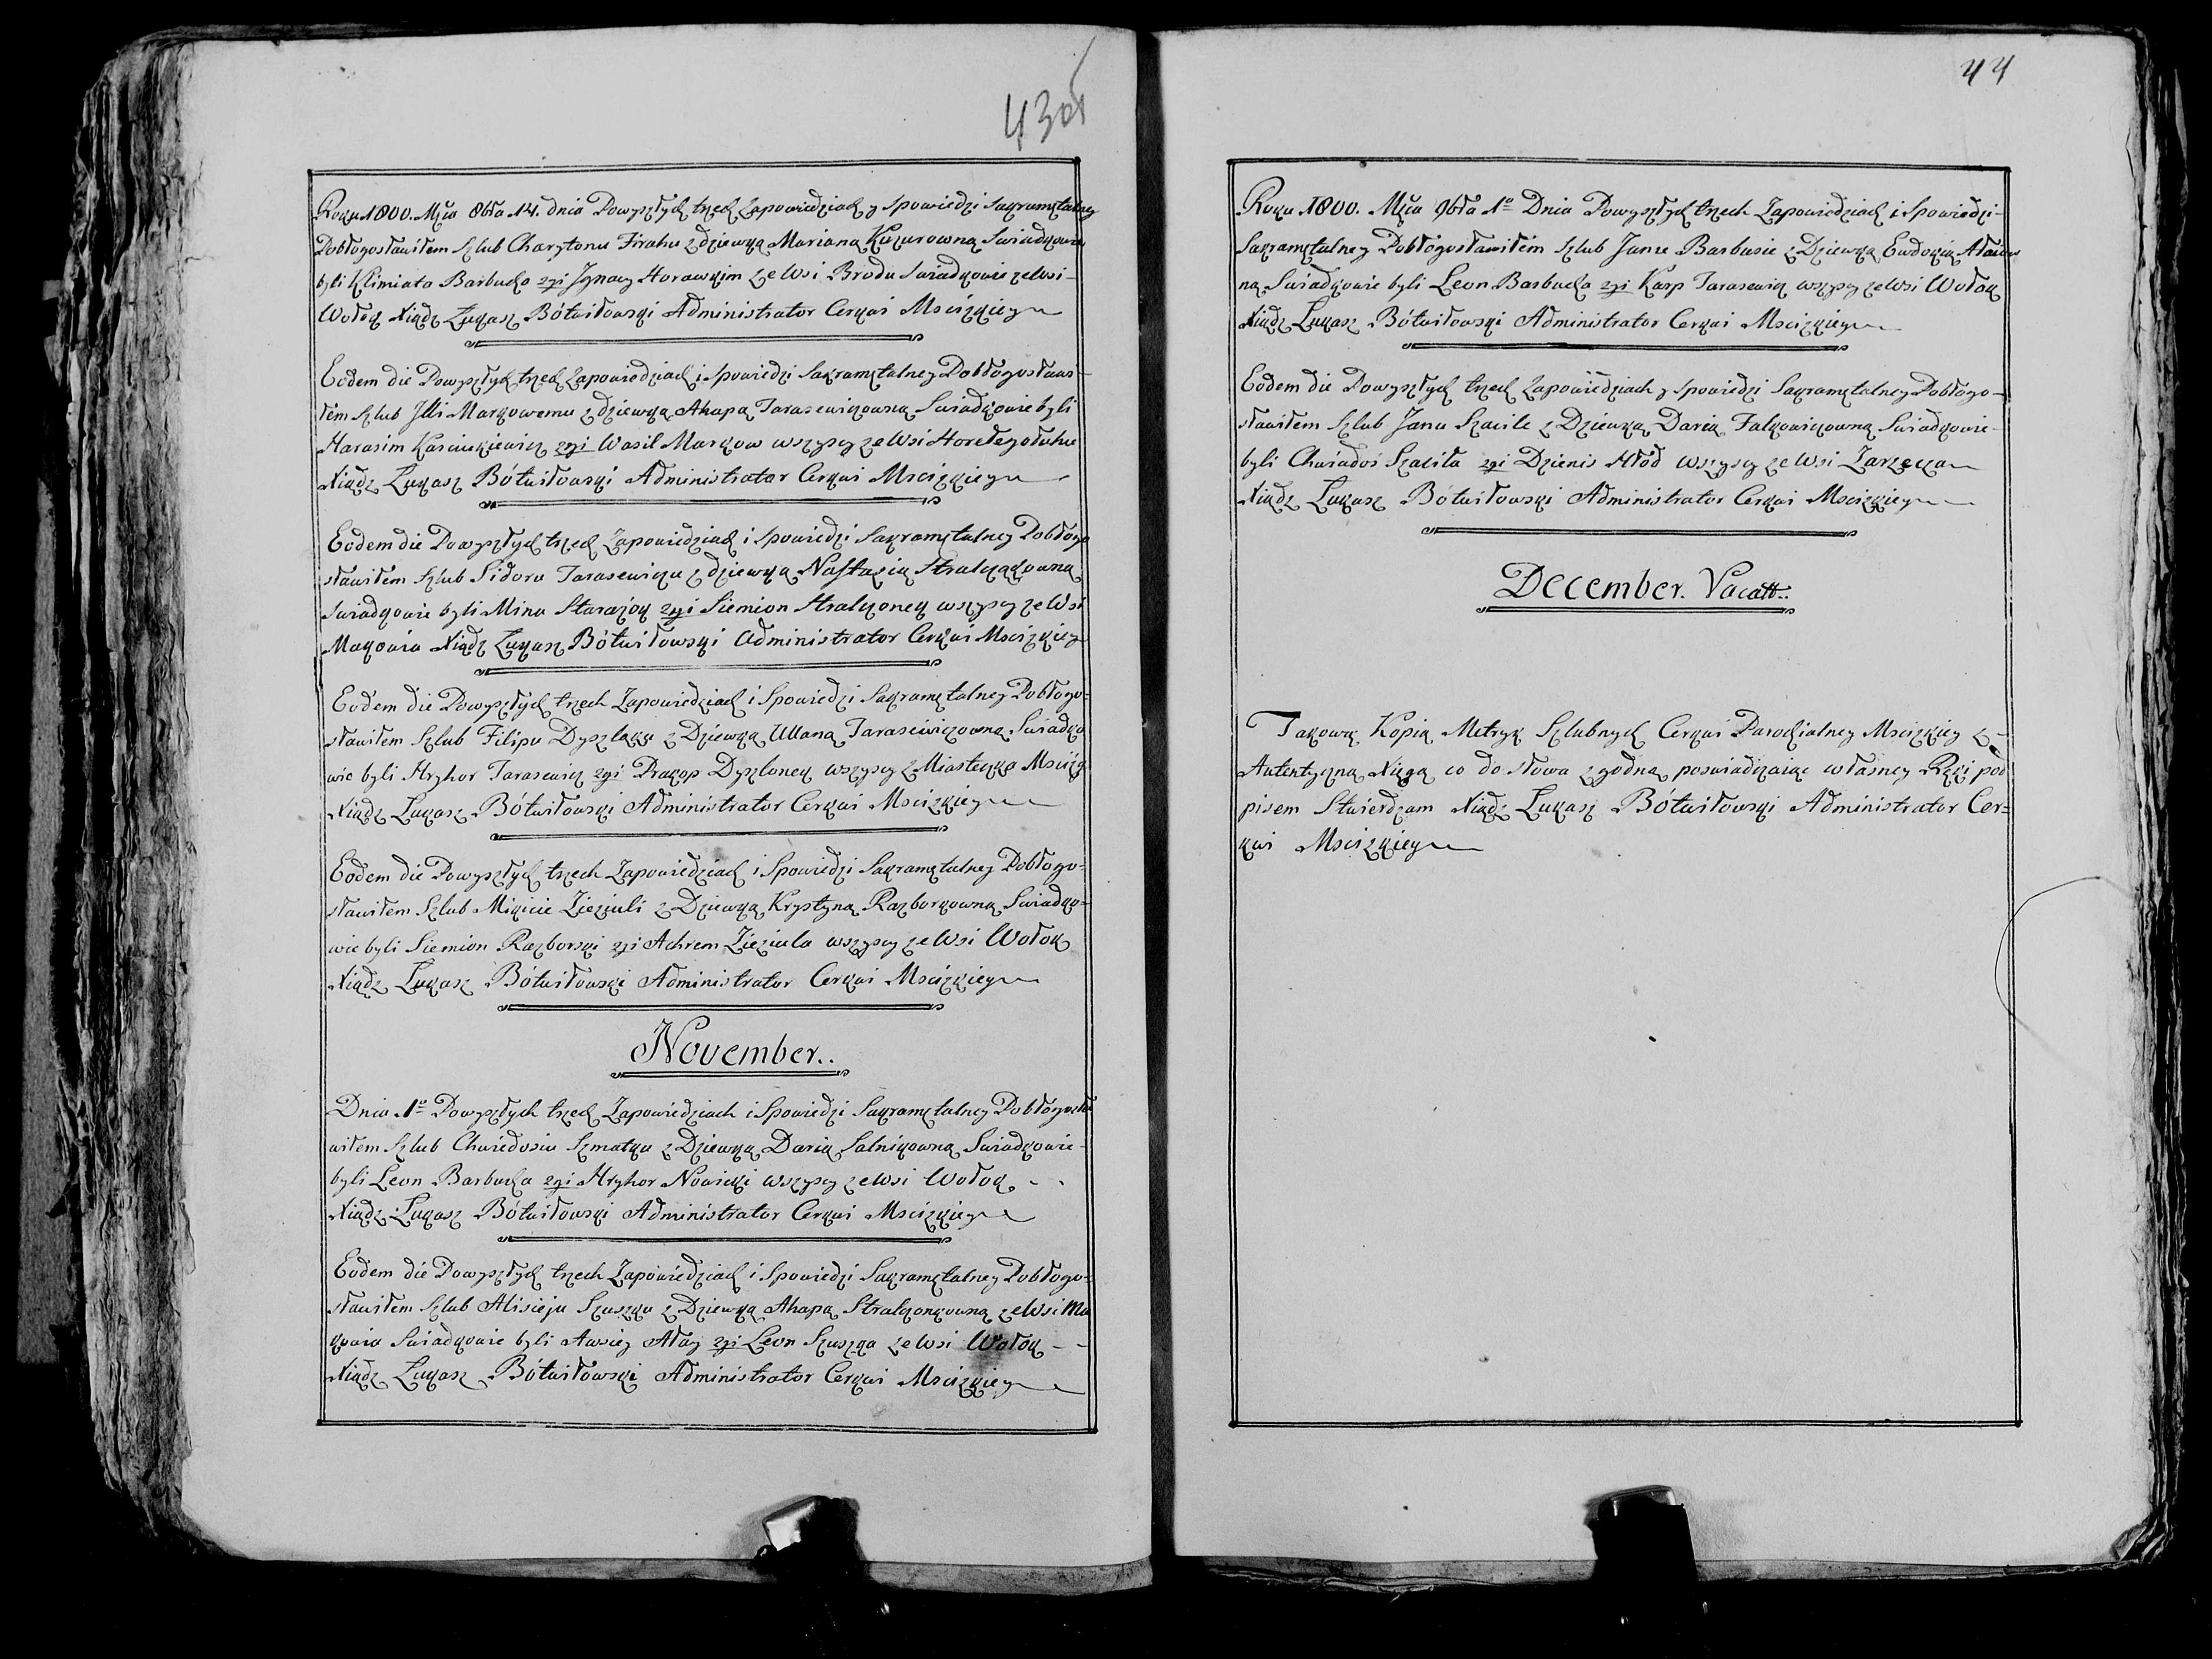 43об
Roku 1800. Mca 8bra 14. dnia Powyszłych trzech Zapowiedziach y Spowiedzi Sakramętalney
Pobłogosławiłem Szlub Charytonu Firahu z dziewką Marianą Kuzurowną Swiadkowie
byli Klimiata Barbucha zgi Jgnacy Horawskim ze Wsi Brodu Swiadkowie ze Wsi
Wołok Xiądz Łukasz Bótwiłowski Administrator Cerkwi Mscizkiey
Eodem die Powyszłych trzech Zapowiedziach i Spowiedzi Sakramętalney Pobłogosławi-
łem Szlub Jlli Markowemu z dziewką Ahapą Tarasewiczowną Swiadkowie byli
Harasim zgi Wasil Markow wszyscy ze Wsi Horełegołuhu
Xiądz Łukasz Bótwiłowski Administrator Cerkwi Mscizkiey
Eodem die Powyszłych trzech Zapowiedziach i Spowiedzi Sakramętalney Pobłogo
sławiłem Szlub Sidoru Tarasewiczu z dziewką Nastazią Stralkąkowną
Swiadkowie byli Mina Starażok zgi Siemion Stralkonek wszyscy ze Wsi
Makowia Xiądz Łukasz Bótwiłowski Administrator Cerkwi Mscizkiey
Eodem die Powyszłych trzech Zapowiedziach i Spowiedzi Sakramętalney Pobłogo-
sławiłem Szlub Filipu Dyszlaku z Dziewką Ullaną Tarasewiczowną Swiadko
wie byli Hryhor Tarasewicz zgi Prakop Dyszlonek wszyscy z Miasteczka Msciż
Xiądz Łukasz Bótwiłowski Administrator Cerkwi Mscizkiey
Eodem die Powyszłych trzech Zapowiedziach i Spowiedzi Sakramętalney Pobłogo-
sławiłem Szlub Mikicie Zieziuli z Dziewką Krystyną Razborkowną Swiadko-
wie byli Siemion Razborski zgi Achrem Zieziula wszyscy ze Wsi Wołok
Xiądz Łukasz Bótwiłowski Administrator Cerkwi Mscizkiey
November..
Dnia 1o Powyszłych trzech Zapowiedziach i Spowiedzi Sakramętalney Pobłogosła
wiłem Szlub Chwiedosiu Szmatku z Dziewką Darią Salnikowną Swiadkowie-
byli Leon Barbucha zgi Hryhor Nowicki wszyscy ze Wsi Wołok - -
Xiądz Łukasz Bótwiłowski Administrator Cerkwi Mscizkiey
Eodem die Powyszłych trzech Zapowiedziach i Spowiedzi Sakramętalney Pobłogo-
sławiłem Szlub Alisieju Szuszku z Dziewką Ahapą Stralkonkowną ze Wsi Ma
kowia Swiadkowie byli Awsiey Ałay zgi Leon Szuszka ze Wsi Wołok - -
Xiądz Łukasz Bótwiłowski Administrator Cerkwi Mscizkiey
44
Roku 1800. Mca 9bra 1o Dnia Powyszłych trzech Zapowiedziach i Spowiedzi-
Sakramętalney Pobłogosławiłem Szlub Janze Barbusie z Dziewką Ewdokią
ną Swiadkowie byli Leon Barbucha zgi Karp Tarasewicz wszyscy ze Wsi Wołok
Xiądz Łukasz Bótwiłowski Administrator Cerkwi Mscizkiey
Eodem die Powyszłych trzech Zapowiedziach y Spowiedzi Sakramętalney Pobłogo-
sławiłem Szlub Janu Szacile z Dziewką Darią Falkowiczowną Swiadkowie-
byli Chwiadoś Szaciła zgi Dzienis Hłod wszyscy ze Wsi Zarzecza
Xiądz Łukasz Bótwiłowski Administrator Cerkwi Mscizkiey
December. Vacatt..
Takową Kopią Metryk Szlubnych Cerkwi Parochialney Mscizkiey z-
Autentyczną Xięgą co do słowa zgodną poswiadczaiąc własney Ręki pod
pisem Stwierdzam Xiądz Łukasz Bótwiłowski Administrator Cer=
kwi Mscizkiey